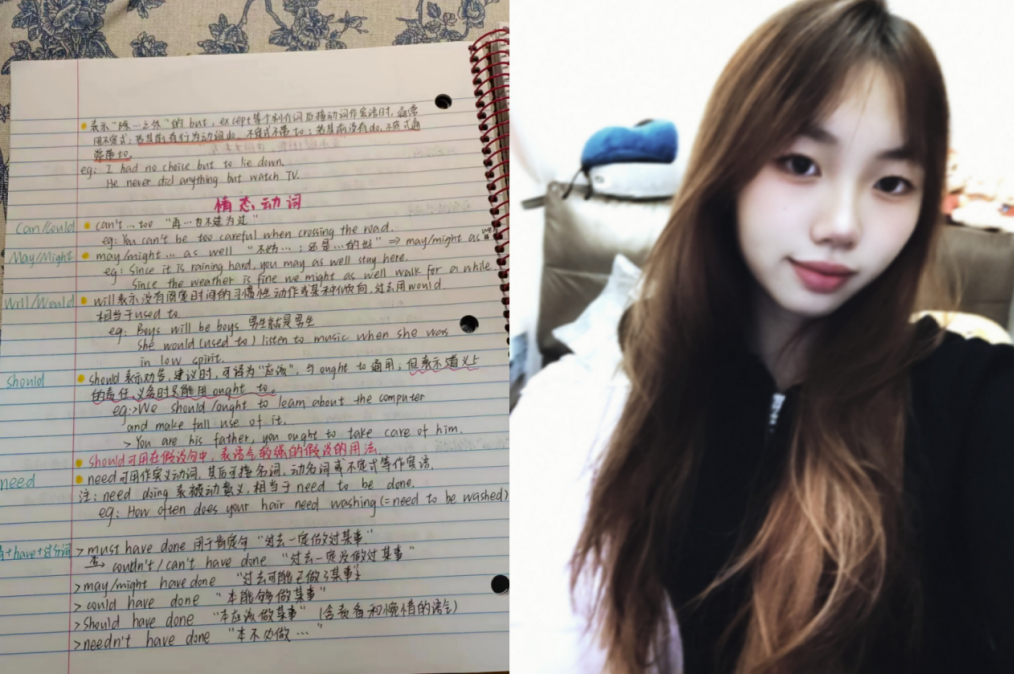 表示“除…之外”的 but, except 等介词后接动词作宾语时, 通常
用不定式; 若其前有行为动词do, 不定式不带to; 若其前没有do, 不定式通
常带to.
eg: I had no choice but to lie down.
He never did anything but watch TV.
情态动词
Can/Could
can't ... too “再…也不过为过”
eg: You can't be too careful when crossing the road.
May/Might
may/might ... as well “不妨…; 还是…的好” ⇒ may/might as well
eg: Since it is raining hard, you may as well stay here.
Since the weather is fine we might as well walk for a while.
Will/Would
will表示没有固定时间的习惯性动作或某种倾向, 过去用would.
相当于used to
eg: Boys will be boys 男生就是男生
She would (used to) listen to music when she was
in low spirit.
should
should 表示劝告, 建议时, 可译为“应该”, 与 ought to 通用; 但表示道义上
的责任、义务时只能用 ought to.
eg: >We should/ought to learn about the computer
and make full use of it.
> You are his father, you ought to take care of him.
should可用在假设句中, 表语气较强的假设的用法
need
need可用作实义动词, 其后可接名词, 动名词或不定式等作宾语.
注: need doing 表被动意义, 相当于 need to be done.
eg: How often does your hair need washing (=need to be washed)
+have+过分词
> must have done 用于肯定句 “过去一定做过某事”
couldn't/can't have done “过去一定没做过某事”
> may/might have done “过去可能已做了某事”
> could have done “本能够做某事”
> should have done “本应该做某事” (含责备和惋惜的语气)
> needn't have done “本不必做…”